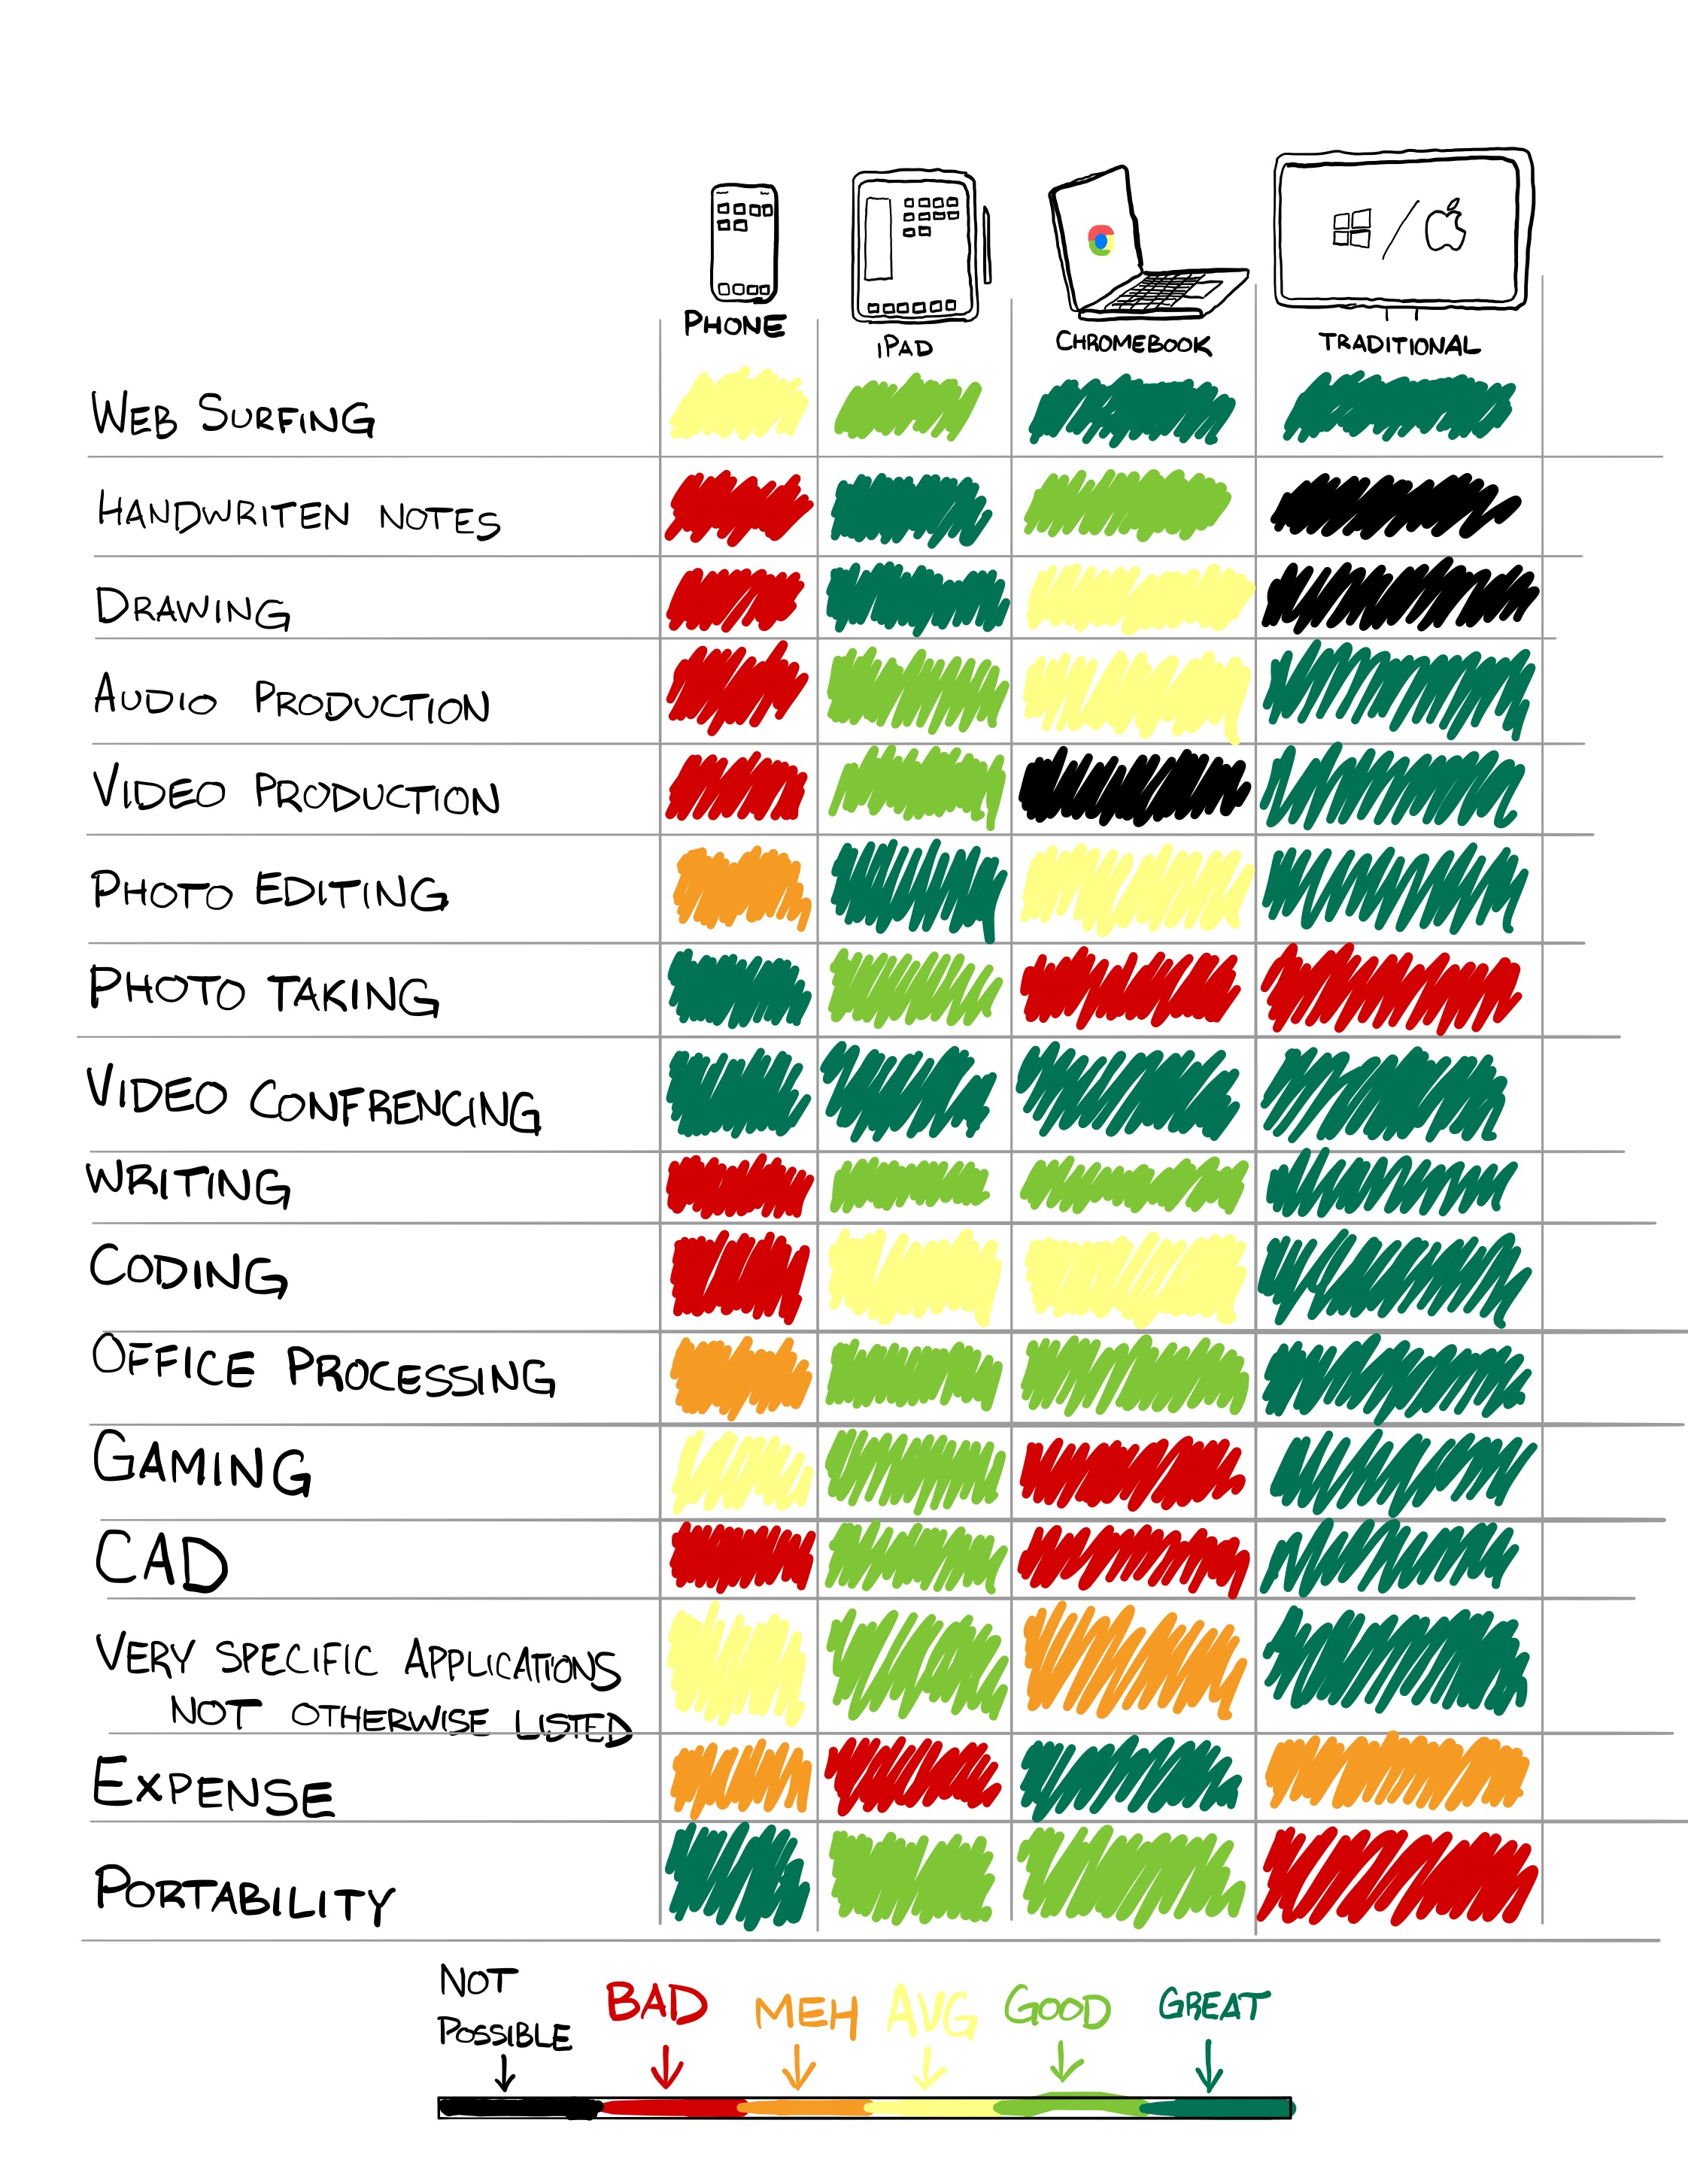 PHONE
iPAD
CHROMEBOOK
TRADITIONAL
WEB SURFING
HANDWRITEN NOTES
DRAWING
AUDIO PRODUCTION
VIDEO PRODUCTION
PHOTO EDITING
PHOTO TAKING
VIDEO CONFRENCING
WRITING
CODING
OFFICE PROCESSING
GAMING
CAD
VERY SPECIFIC APPLICATIONS
NOT OTHERWISE LISTED
EXPENSE
PORTABILITY
NOT
POSSIBLE
BAD
MEH
AVG
GOOD
GREAT